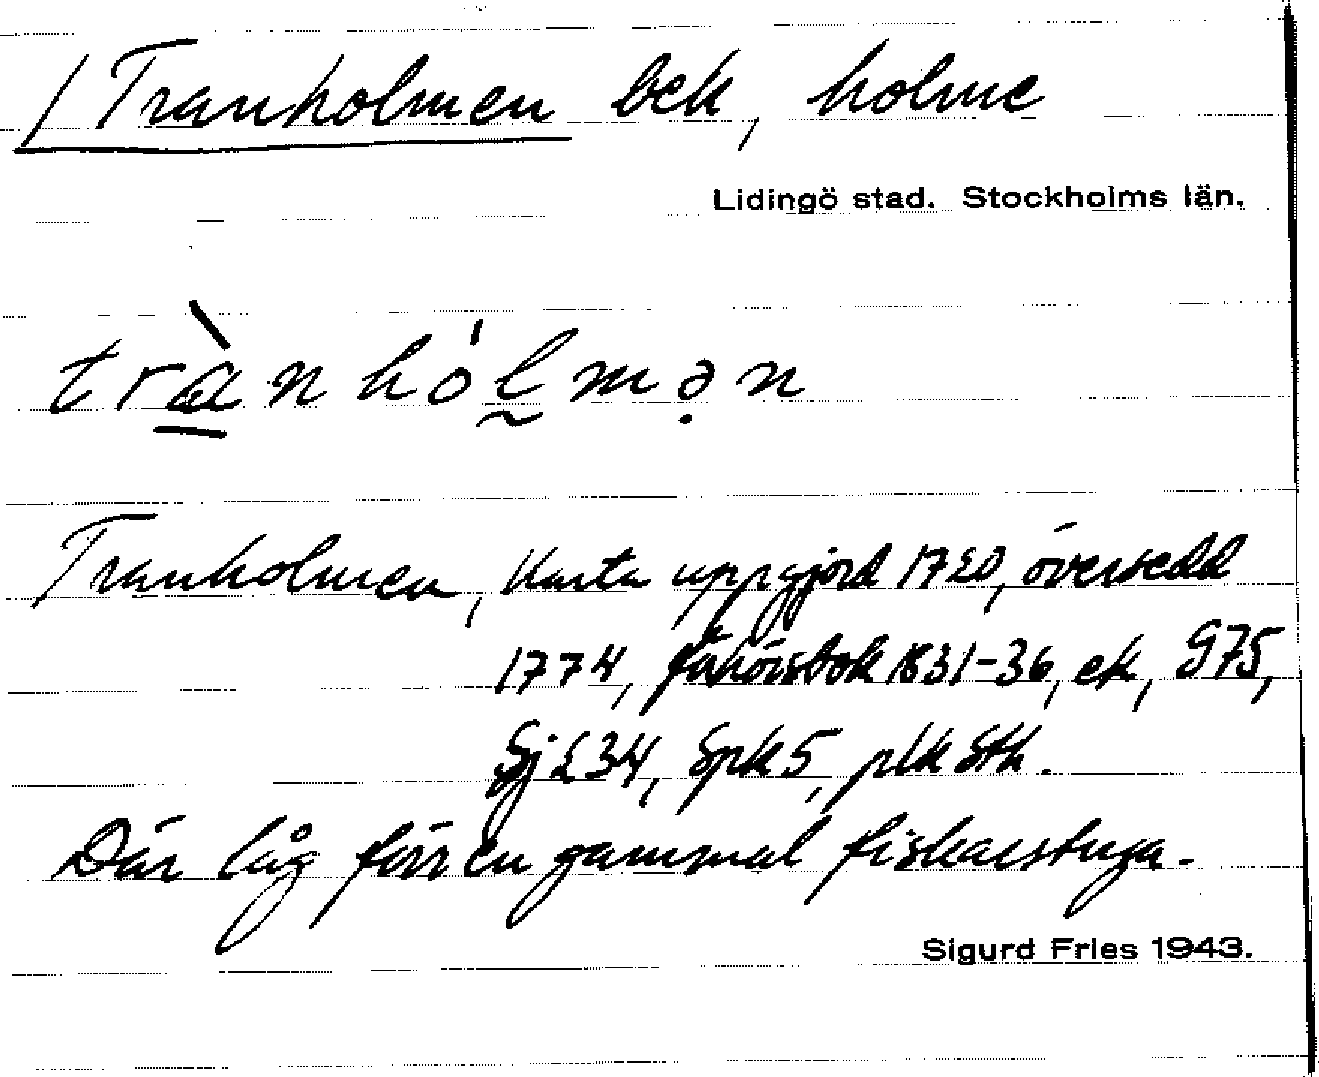 Tranholmen bek, holme
Lidingö stad. Stockholms län.
trànhólmən
Tranholmen, Karta uppgjord 1720, översedd
1774, 1831-36, ek, G75,
Sj£34, Spk5, plk Sth.
Där låg förr en gammal fiskarstuga.
Sigurd Fries 1943.